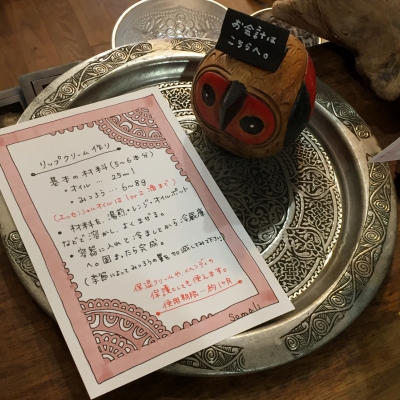 お会計は
こちらへ。
リップクリーム作り
基本の材料(5~6本分)
・オイル … 25ml
・みつろう … 6~8g
(エッセンシャルオイルは1 or 2滴まで)
・材料を、湯煎・レンジ・オイルポット
などで溶かし、よくまぜる。
・容器に入れて冷ましてから冷蔵庫
へ。固まったら完成。
(季節によってみつろうの量を加減してみて下さい)
保湿クリームや、ヘンナの
保護としても使えます。
使用期限…約1ヶ月